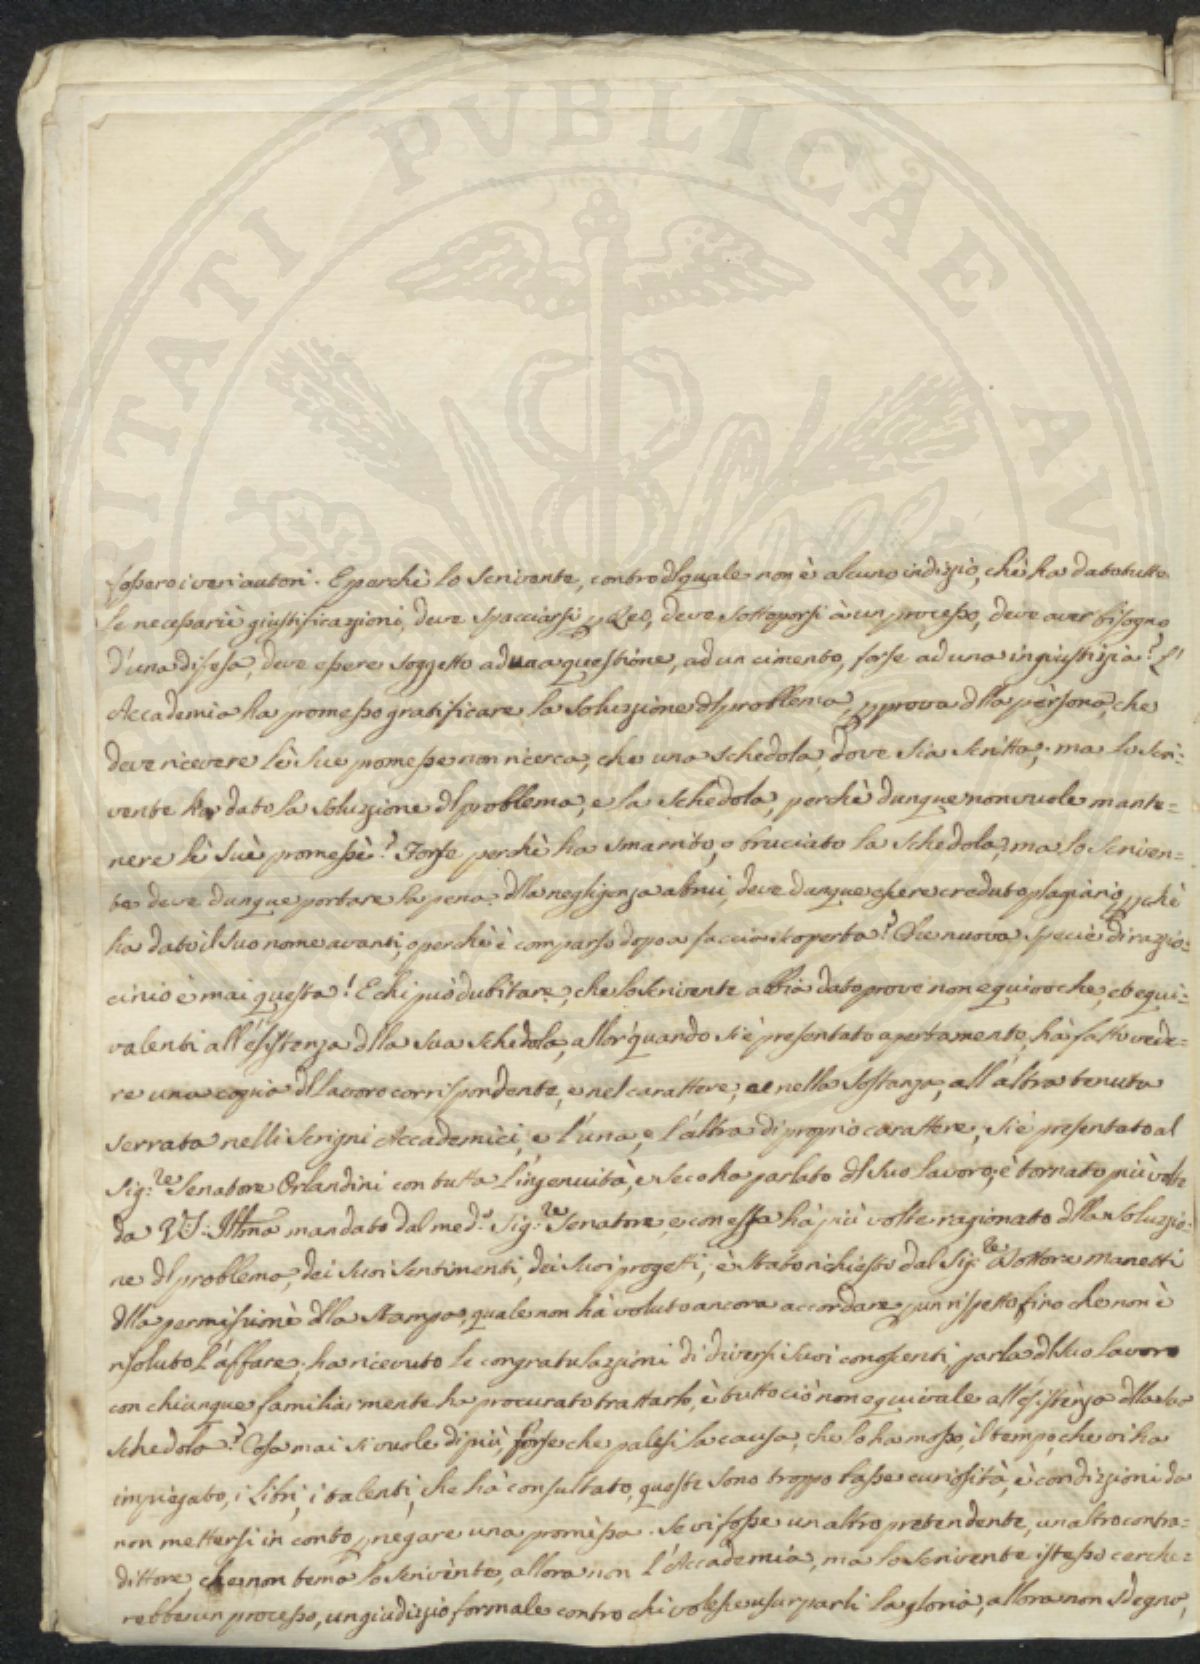 PROSPERITATI PUBLICAE AU
fossero i veri autori. E perchè lo scrivente, contro dl quale non è alcuno indizio, che ha dato tutte
le necessarie giustificazioni, deve spacciarsi p Reo, deve sottoporsi à un processo, deve aver bisogno
d'una difesa, deve essere soggetto ad una questione, ad un cimento, forse ad una ingiustizia? L'
Accademia ha promesso gratificare la soluzione dl problema, p prova dlla persona, che
deve ricevere le sue promesse non ricerca, che una schedola, dove sia scritta; ma lo scri:
vente ha dato la soluzione dl problema, e la schedola, perchè dunque non vuole mante=
nere le sue promesse? Forse perchè ha smarrito, o bruciato la schedola, ma lo scriven=
te deve dunque portare la pena dlla negligenza altrui, deve dunque essere creduto plagiario, p chè
ha dato il suo nome avanti, o perchè è comparso dopo a faccia scoperta? Che nuova specie di razio:
cinio è mai questa! E chi può dubitare, che lo scrivente abbia dato prove non equivoche, ed equi=
valenti all'esistenza dlla sua schedola, allor quando si è presentato apertamente, hà fatto vede=
re una copia dl lavoro corrispondente, e nel carattere, e nella sostanza, all'altra tenuta
serrata nelli scrigni Accademici, e l'una, e l'altra di proprio carattere, si è presentato al
Sig:re Senatore Orlandini con tutta l'ingenuità, e seco ha parlato dl suo lavoro, è tornato più volte
da V.S: Illma mandato dal med:o Sig:re Senatore, e con essa hà più volte ragionato dlla soluzio:
ne dl problema, dei suoi sentimenti, dei suoi progetti, è stato richiesto dal Sig:re Dottore Manetti
dlla permissione dlla stampa, quale non hà voluto ancora accordare p un rispetto, fino che non è
risoluto l'affare, ha ricevuto le congratulazioni di diversi suoi conoscenti, parla dl suo lavoro
con chiunque familiarmente ha procurato trattarlo, è tutto ciò non equivale all'esistenza dlla sua
schedola? Cosa mai si vuole di più, forse che palesi la causa, che lo ha mosso, il tempo, che vi ha
impiegato, i Libri, i talenti, che hà consultato, queste sono troppo basse curiosità, è condizioni da
non mettersi in conto p negare una promessa. Se vi fosse un altro pretendente, un altro contra=
dittore, che non tema lo scrivente, allora non l'Accademia, ma lo scrivente istesso cerche=
rebbe un processo, un giudizio formale contro chi volesse usurparli la gloria, allora non sdegno,